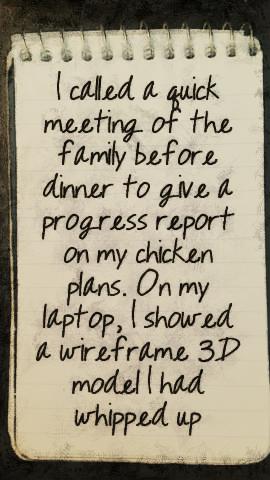 I called a quick
meeting of the
family before
dinner to give a
progress report
on my chicken
plans. On my
laptop, I showed
a wireframe 3D
model I had
whipped up